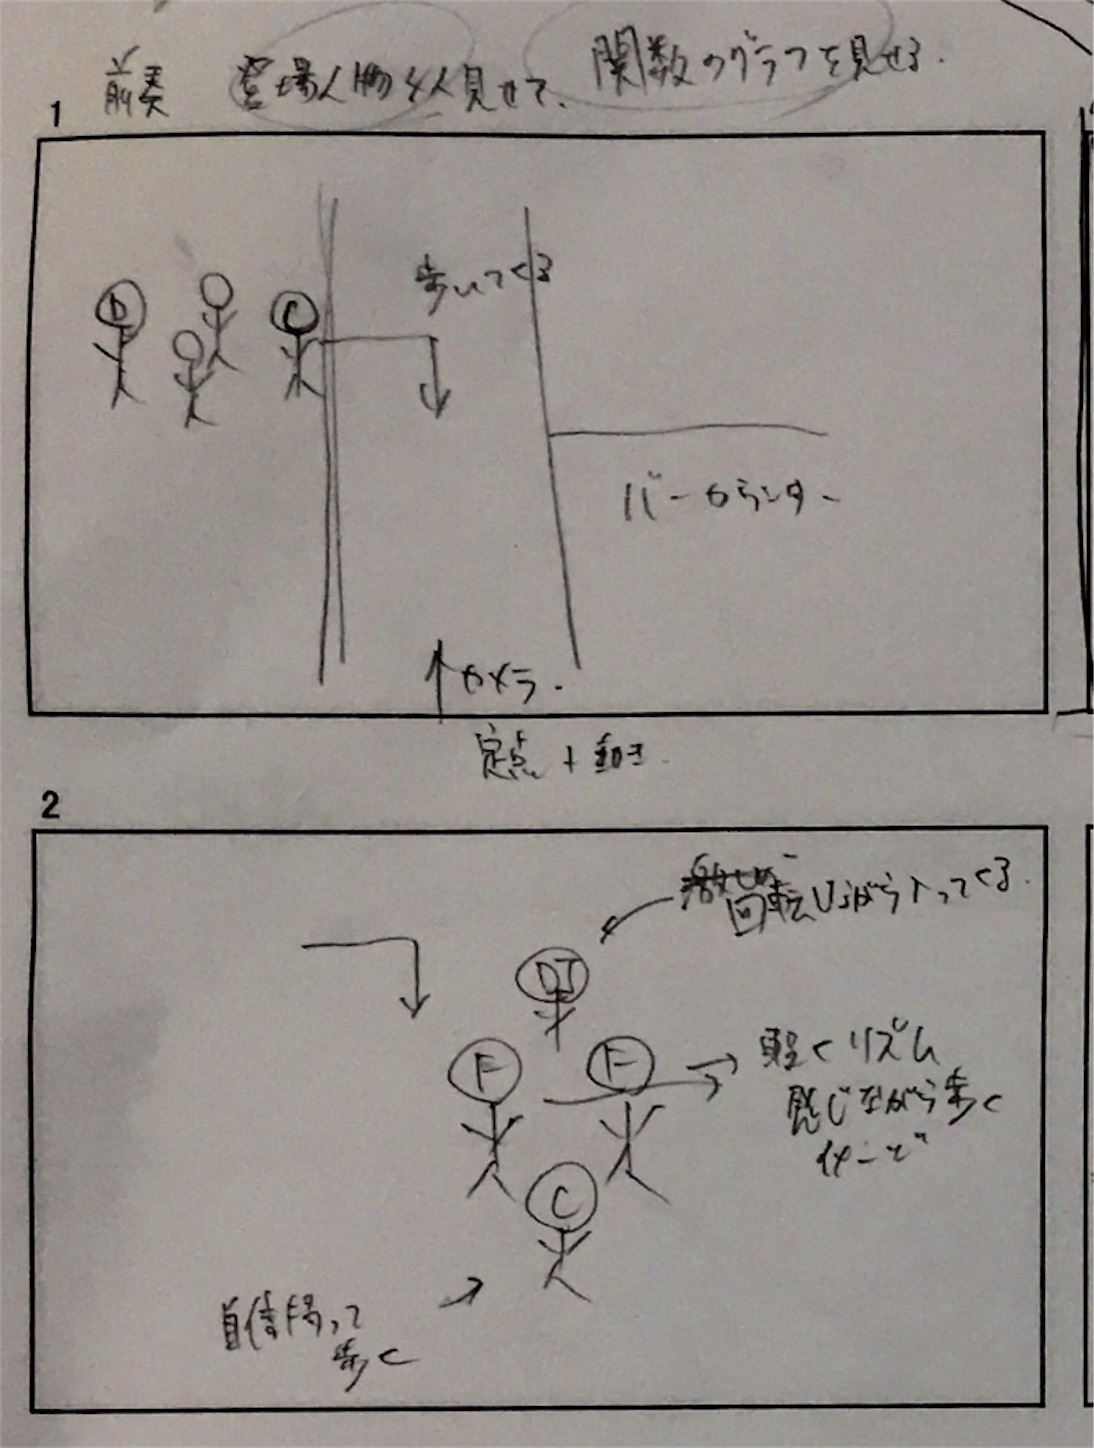 1 前奏 登場人物4人見せて、関数のグラフを見せる.
D
C
歩いてくる
バーカウンター
カメラ.
定点 + 動き.
2
回転しながら入ってくる.
DJ
F F
軽くリズム
感じながら歩く
C
自信持って
歩く